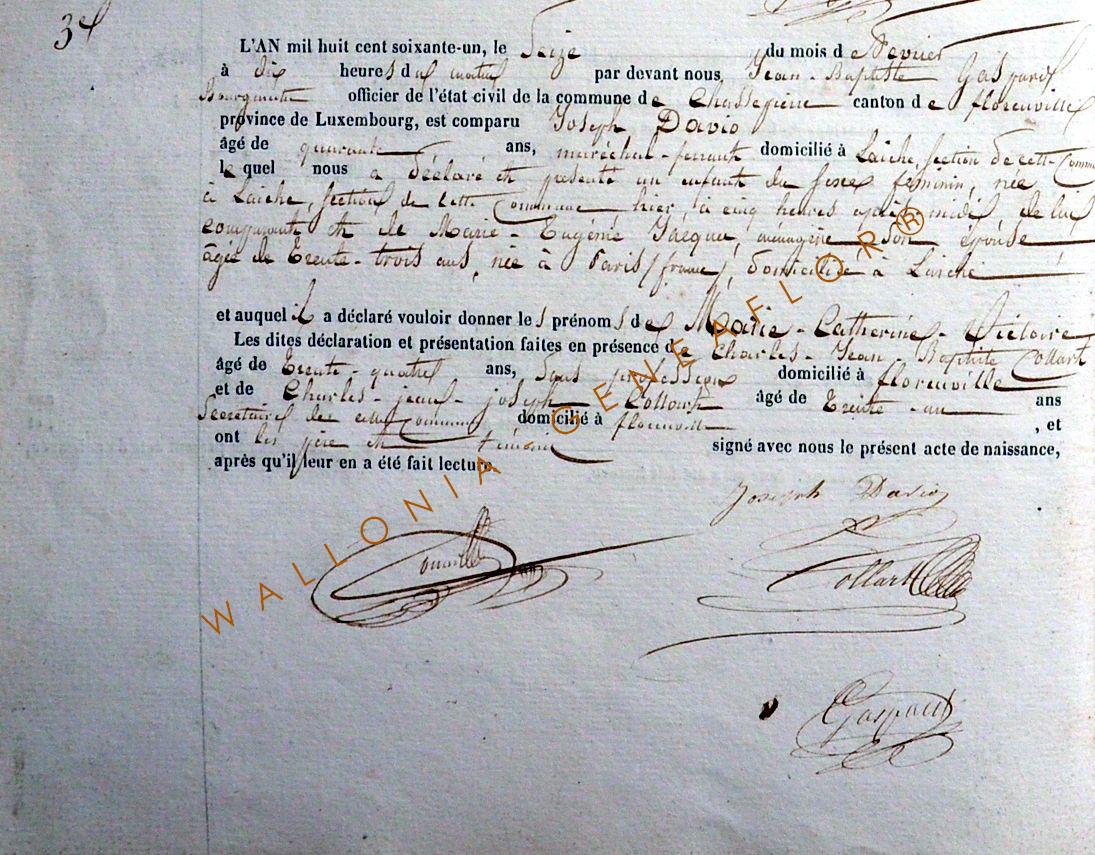 3e
L'AN mil huit cent soixante-un, le Seize du mois de Fevrier
à dix heures du matin par devant nous, Jean-Baptiste Gaspard,
Bourgmestre officier de l'état civil de la commune de Chassepierre canton de florenville
province de Luxembourg, est comparu Joseph Davio
âgé de quarante ans, maréchal-ferrant domicilié à Laiche, section de cette Commune
lequel nous a déclaré et présenté un enfant du sexe féminin, née
à Laiche, section de cette Commune hier, à cinq heures après midi, de lui
comparant et de Marie-Eugénie Jacque, ménagère son épouse
âgée de Trente-trois ans, née à Paris (france), domiciliée à Laiche
et auquel il a déclaré vouloir donner les prénoms de Marie-Catherine-Victoire
Les dites déclaration et présentation faites en présence de Charles-Jean-Baptiste Collart
âgé de Trente-quatre ans, Sans profession domicilié à florenville
et de Charles-jean-joseph Collart âgé de Trente-un ans
Secrétaire de cette Commune domicilié à florenville, et
ont les père et témoins signé avec nous le présent acte de naissance,
après qu'il leur en a été fait lecture
Joseph Davio
Collart
Gaspard
WALLONIA GENEAFLOR®